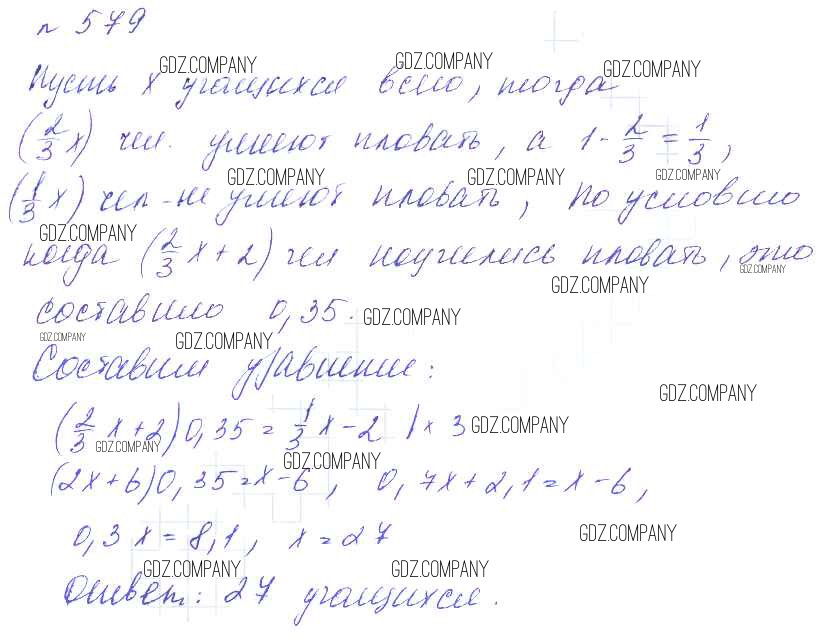 № 579
GDZ.COMPANY GDZ.COMPANY GDZ.COMPANY
Пусть x учащихся всего, тогда
(2/3 x) чел. умеют плавать, а 1 - 2/3 = 1/3,
GDZ.COMPANY GDZ.COMPANY GDZ.COMPANY
(1/3 x) чел - не умеют плавать, по условию
GDZ.COMPANY
когда (2/3 x + 2) чел научились плавать, это
GDZ.COMPANY
GDZ.COMPANY
составило 0,35. GDZ.COMPANY
GDZ.COMPANY GDZ.COMPANY
Составим уравнение:
GDZ.COMPANY
(2/3 x + 2) 0,35 = 1/3 x - 2 | × 3 GDZ.COMPANY
GDZ.COMPANY GDZ.COMPANY
(2x + 6) 0,35 = x - 6, 0,7x + 2,1 = x - 6,
0,3x = 8,1, x = 27 GDZ.COMPANY
GDZ.COMPANY GDZ.COMPANY
Ответ: 27 учащихся.